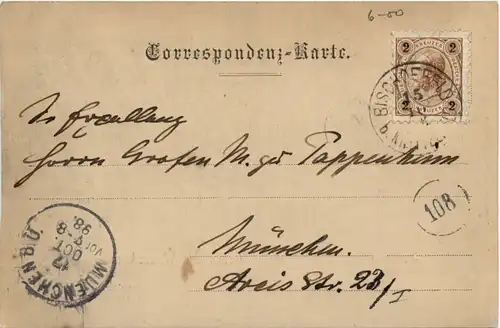 6-00
Correspondenz-Karte.
2 KREUZER 2
2 2
BISCHOFSHOFEN
Sr Excellenz
Herrn Grafen M. zu Pappenheim
108
München.
Arcis Str. 23/I
MUENCHEN B.O.
17 OCT
7-8
VOR
98.